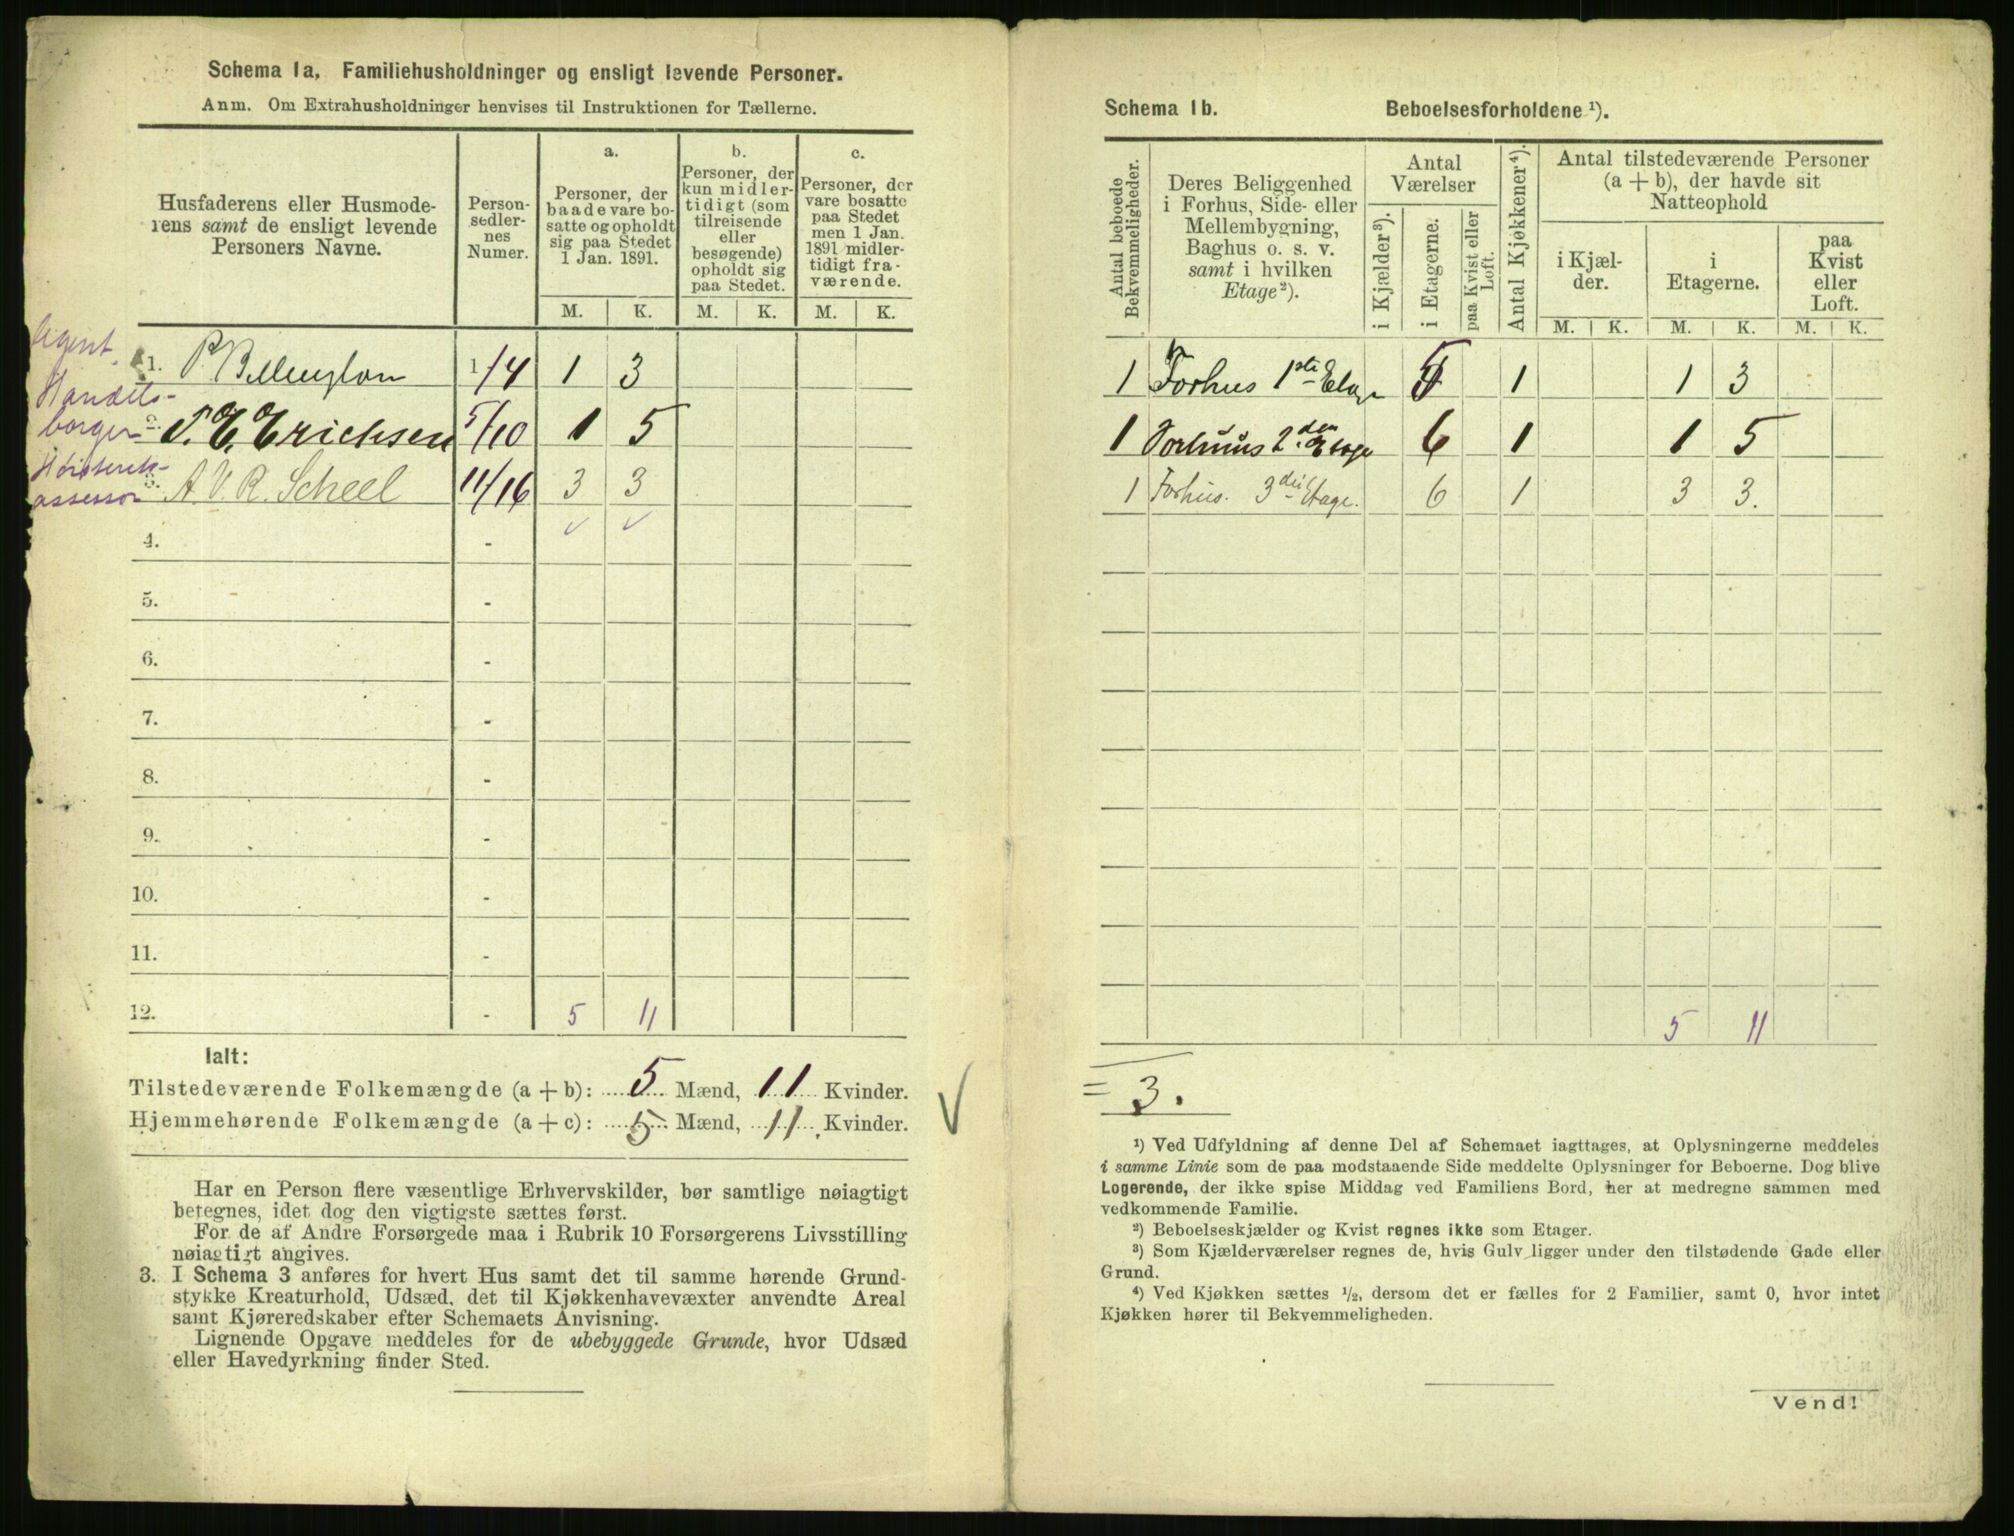 Schema 1a. Familiehusholdninger og ensligt levende Personer.
Anm. Om Extrahusholdninger henvises til Instruktionen for Tællerne.
Husfaderens eller Husmode-
rens samt de ensligt levende
Personers Navne.
Person-
sedler-
nes
Numer.
a.
Personer, der
baade vare bo-
satte og opholdt
sig paa Stedet
1 Jan. 1891.
b.
Personer, der
kun midler-
tidigt (som
tilreisende
eller
besøgende)
opholdt sig
paa Stedet.
c.
Personer, der
vare bosatte
paa Stedet
men 1 Jan.
1891 midler-
tidigt fra-
værende.
M. K. M. K. M. K.
Agent
1. P. 1/4 1 3
Handels-
borger
2. E. Erichsen 5/10 1 5
Høiesterets-
assessor
3. A. V. R. Scheel 11/16 3 3
4. -
5. -
6. -
7. -
8. -
9. -
10. -
11. -
12. - 5 11
Ialt:
Tilstedeværende Folkemængde (a + b): 5 Mænd, 11 Kvinder.
Hjemmehørende Folkemængde (a + c): 5 Mænd, 11 Kvinder.
Har en Person flere væsentlige Erhvervskilder, bør samtlige nøiagtigt
betegnes, idet dog den vigtigste sættes først.
For de af Andre Forsørgede maa i Rubrik 10 Forsørgerens Livsstilling
nøiagtigt angives.
3. I Schema 3 anføres for hvert Hus samt det til samme hørende Grund-
stykke Kreaturhold, Udsæd, det til Kjøkkenhavevæxter anvendte Areal
samt Kjøreredskaber efter Schemaets Anvisning.
Lignende Opgave meddeles for de ubebyggede Grunde, hvor Udsæd
eller Havedyrkning finder Sted.
Schema 1b. Beboelsesforholdene ¹).
Antal beboede
Bekvemmeligheder.
Deres Beliggenhed
i Forhus, Side- eller
Mellembygning,
Baghus o. s. v.
samt i hvilken
Etage²).
Antal
Værelser
i Kjælder³).
i Etagerne.
paa Kvist eller
Loft.
Antal Kjøkkener⁴).
Antal tilstedeværende Personer
(a + b), der havde sit
Natteophold
i Kjæl-
der.
i
Etagerne.
paa
Kvist
eller
Loft.
M. K. M. K. M. K.
1 Forhus 1ste Etage 5 1 1 3
1 Forhuus 2den Etage 6 1 1 5
1 Forhus. 3die Etage. 6 1 3 3.
5 11
= 3.
¹) Ved Udfyldning af denne Del af Schemaet iagttages, at Oplysningerne meddeles
i samme Linie som de paa modstaaende Side meddelte Oplysninger for Beboerne. Dog blive
Logerende, der ikke spise Middag ved Familiens Bord, her at medregne sammen med
vedkommende Familie.
²) Beboelseskjælder og Kvist regnes ikke som Etager.
³) Som Kjælderværelser regnes de, hvis Gulv ligger under den tilstødende Gade eller
Grund.
⁴) Ved Kjøkken sættes ½, dersom det er fælles for 2 Familier, samt 0, hvor intet
Kjøkken hører til Bekvemmeligheden.
Vend!